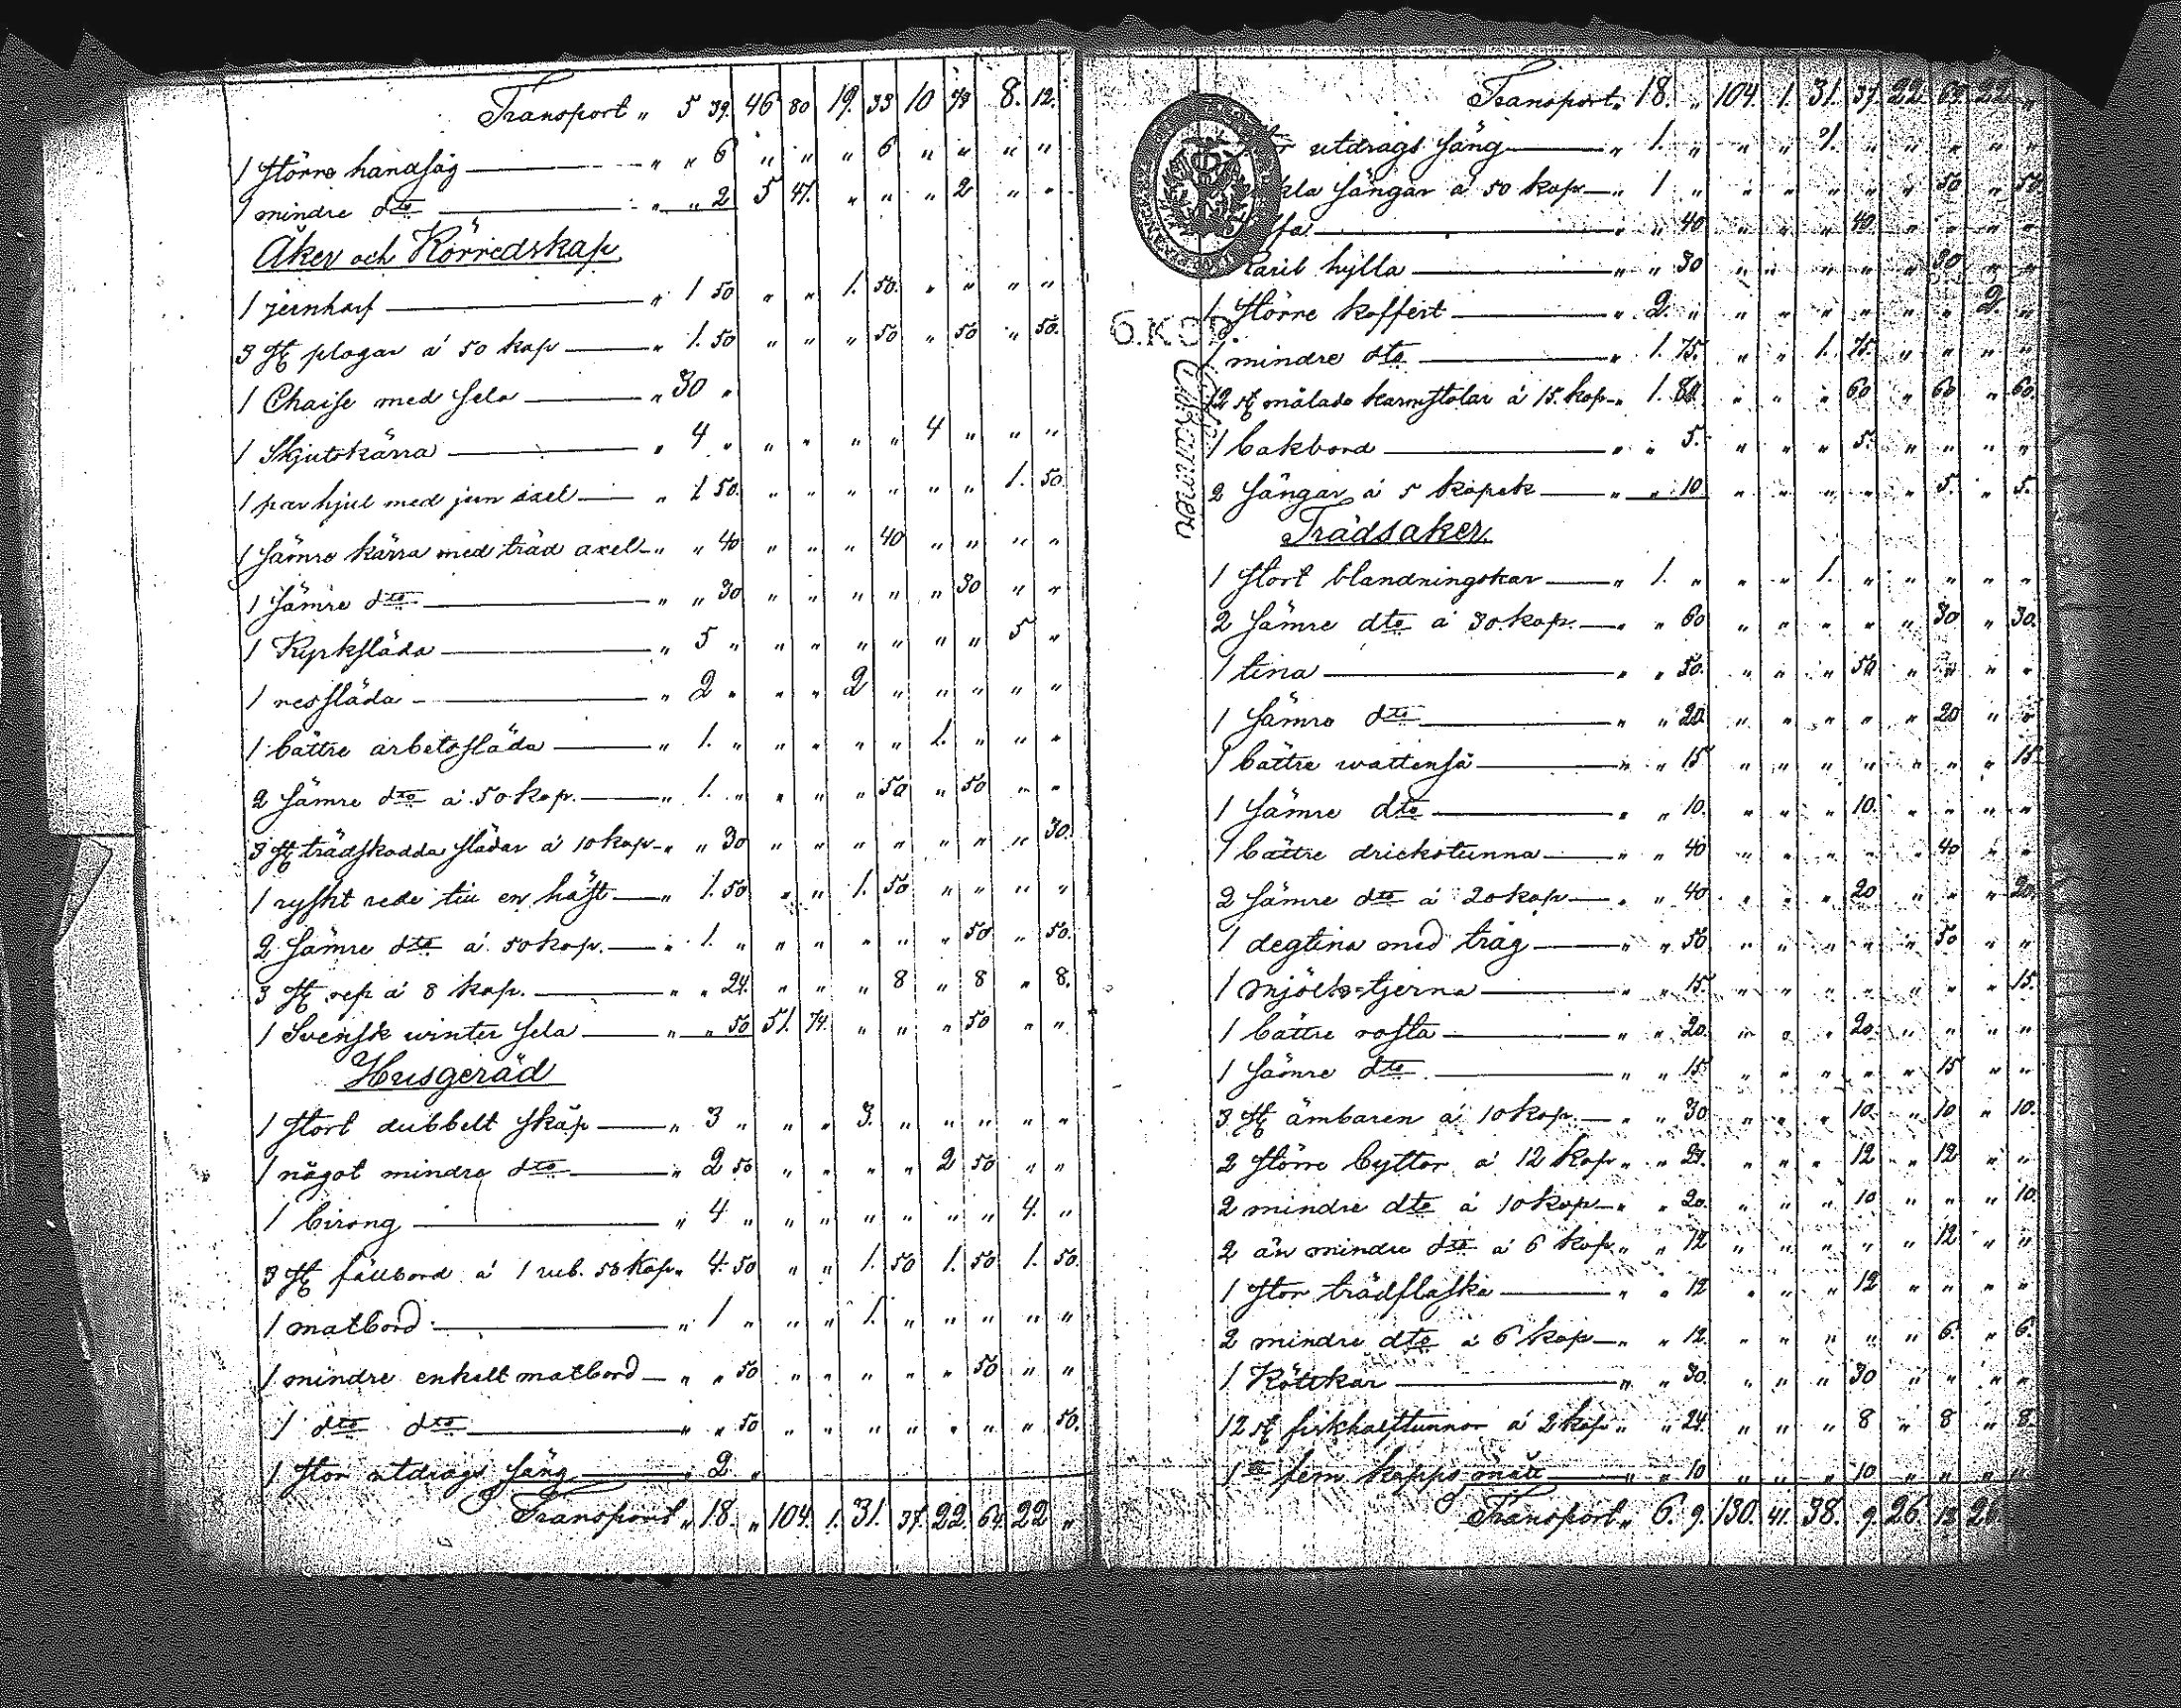 Transport " 5 39. 46 80 19. 33 10 78 8. 12.
1 större handsåg " " 6 " " " 6 " " " "
1 mindre dto " " 2 5 47. " " " 2 " "
Åker och Körredskap
1 jernharf " 1 50 " " 1. 50. " " " "
3 st plogar á 50 kop " 1. 50 " " " 50 " 50 " 50.
1 Chaise med sela " 30 "
1 Skjutskärra " 4 " " " " " 4 " " "
1 par hjul med jern axel " 1 50 " " " " " " 1. 50.
1 sämre kärra med träd axel " " 40 " " " 40 " " " "
1 sämre dto " " 30 " " " " " 30 " "
1 Kyrksläda " 5 " " " " " " " 5 "
1 ressläda " 2 " " " 2 " " " " "
1 bättre arbetssläda " 1. " " " " " 1. " " "
2 sämre dto á 50 kop. " 1. " " " " 50 " 50 " "
3 st trädskodda slädar á 10 kop " " 30 " " " " " " " 30.
1 ryskt rede till en häst " 1. 50 " " 1. 50 " " " "
2 sämre dto á 50 kop. " 1. " " " " " " 50 " 50.
3 st rep á 8 kop. " " 24. " " " 8 " 8 " 8.
1 Svensk winter sela " " 50 51. 74. " " " 50 " "
Husgeråd
1 stort dubbelt skåp " 3 " " " 3. " " " " "
1 något mindre dto " 2 50 " " " " 2 50 " "
1 birong " 4 " " " " " " " 4. "
3 st fällbord á 1 rub. 50 kop " 4. 50 " " 1. 50 1. 50 1. 50.
1 matbord " 1 " " " 1. " " " " "
1 mindre enkelt matbord " " 50 " " " " " 50 " "
1 dto dto " " 50 " " " " " " " 50.
1 stor utdrags säng " 2 "
Transport " 18. " 104. 1. 31. 37. 22. 64. 22 "
Transport " 18. " 104. 1. 31. 37. 22 22 "
utdrags säng " 1. " " " 1. " " " " "
sängar á 50 kop " 1 " " " " " " 50 " 50
" " 40 " " " 40 " " " "
hylla " " 30 " " " " " 30 " "
6.КОП.
1 större koffert " 2. " " " " " " " 2. "
1 mindre dto " 1. 75. " " 1. 75. " " " "
12 st målade karmstolar á 15. kop " 1. 80. " " " 60 " 60 " 60.
1 bakbord " " 5. " " " 5. " " " "
2 sängar á 5 kopek " " 10 " " " " " 5. " 5.
Trädsaker.
1 stort blandningskar " 1. " " " 1. " " " " "
2 sämre dto á 30. kop. " " 60 " " " " " 30 " 30.
1 tina " " 50. " " " 50 " " " "
1 sämre dto " " 20 " " " " " 20 " "
1 bättre wattenså " " 15 " " " " " " " 15
1 sämre dto " " 10. " " " 10. " " " "
1 bättre drickstunna " " 40 " " " " " 40 " "
2 sämre dto á 20 kop " " 40 " " " 20 " " " 20.
1 degtina med tråg " " 50 " " " " " 50 " "
1 mjölk-tjerna " " 15. " " " " " " " 15.
1 bättre rosta " " 20. " " " 20. " " " "
1 sämre dto " " 15 " " " " " 15 " "
3 st ämbaren á 10 kop " " 30 " " " 10. " 10 " 10.
2 större byttor á 12 kop " " 24. " " " 12 " 12 " "
2 mindre dto á 10 kop " " 20. " " " 10 " " " 10.
2 än mindre dto á 6 kop " " 12 " " " " " 12 " "
1 stor trädflaska " " 12 " " " 12 " " " "
2 mindre dto á 6 kop " " 12. " " " " " 6. " 6.
1 Köttkar " " 30. " " " 30 " " " "
12 st fiskhalftunnor á 2 kop " " 24. " " " 8 " 8 " 8.
1 fem kappe mått " " 10 " " " 10 " " " "
Transport " 6. 9. 130. 41. 38. 9. 26.